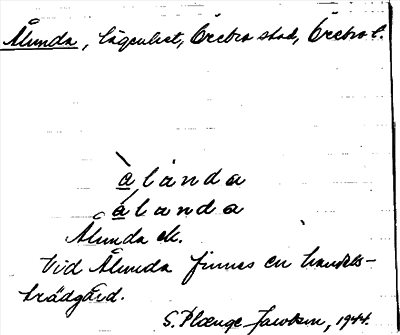 Ålunda, lägenhet, Örebro stad, Örebro l.
àlúnda
álanda
Ålunda ek.
Vid Ålunda finnes en handels-
trädgård.
S. Plænge Jacobson, 1944.